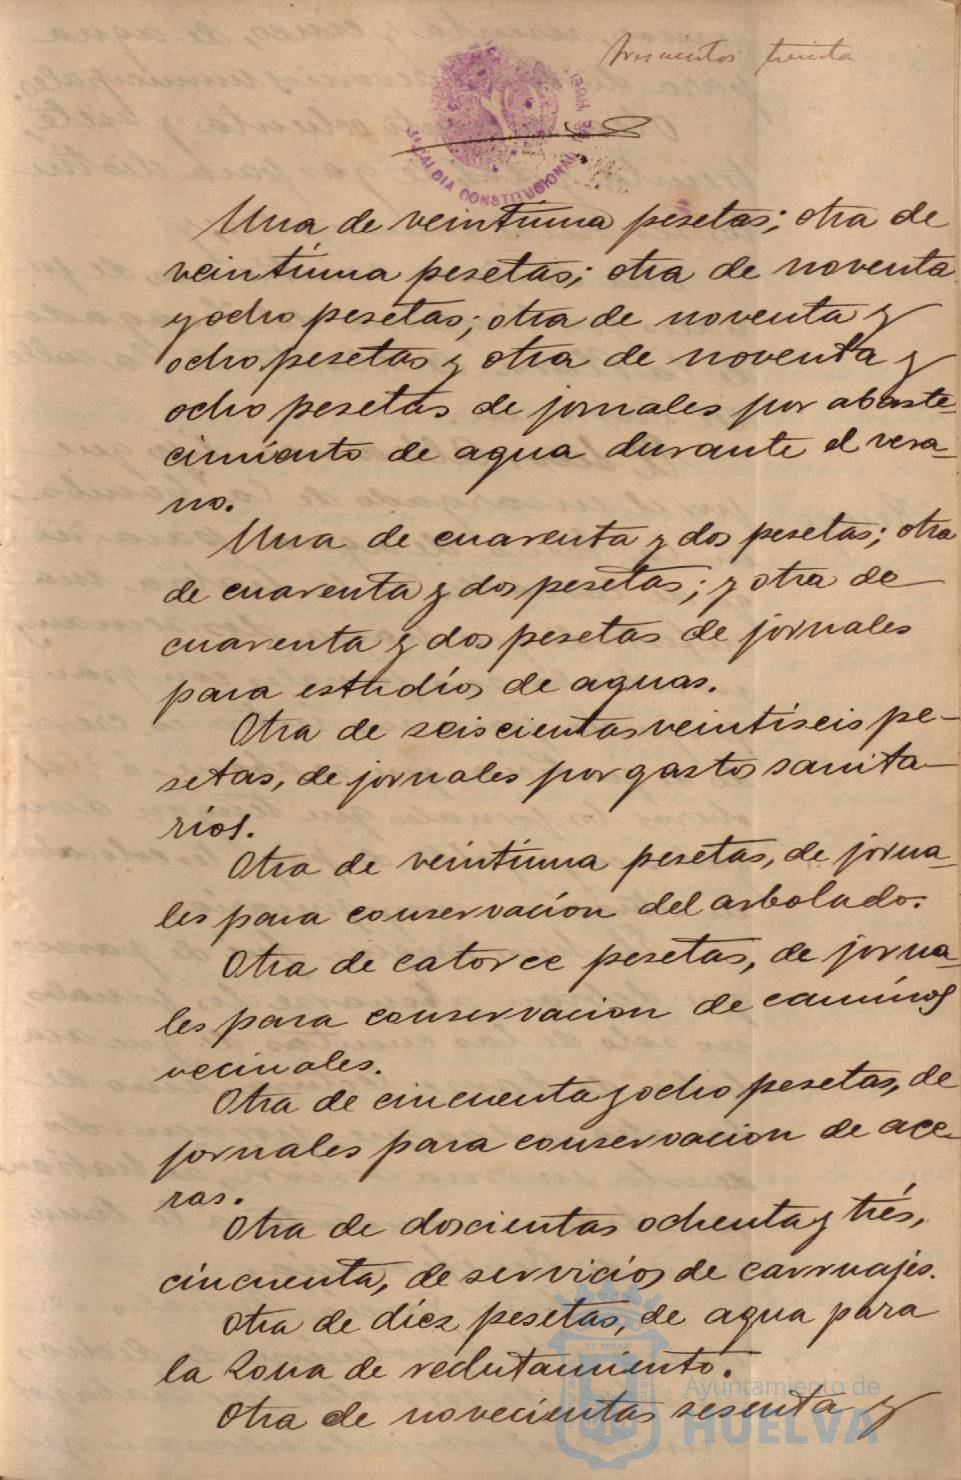 trescientos treinta
ALCALDIA CONSTITUCIONAL DE HUEL
Una de veintiuna pesetas; otra de
veintiuna pesetas; otra de noventa
y ocho pesetas; otra de noventa y
ocho pesetas y otra de noventa y
ocho pesetas de jornales por abaste-
cimiento de agua durante el vera-
no.
Una de cuarenta y dos pesetas; otra
de cuarenta y dos pesetas; y otra de
cuarenta y dos pesetas de jornales
para estudios de aguas.
Otra de seiscientas veintiseis pe-
setas, de jornales por gastos sanita-
rios.
Otra de veintiuna pesetas, de jorna-
les para conservación del arbolado.
Otra de catorce pesetas, de jorna-
les para conservacion de caminos
vecinales.
Otra de cincuenta y ocho pesetas, de
jornales para conservacion de ace-
ras.
Otra de doscientas ochenta y trés,
cincuenta, de servicios de carruajes.
Otra de diez pesetas, de agua para
la Zona de reclutamiento.
Otra de novecientas sesenta y
Ayuntamiento de
HUELVA